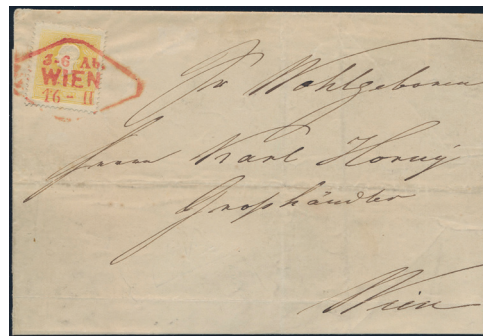 3-6 Ab.
WIEN
16-11
Sr Wohlgeboren
Herrn Karl Horný
Großhändler
Wien